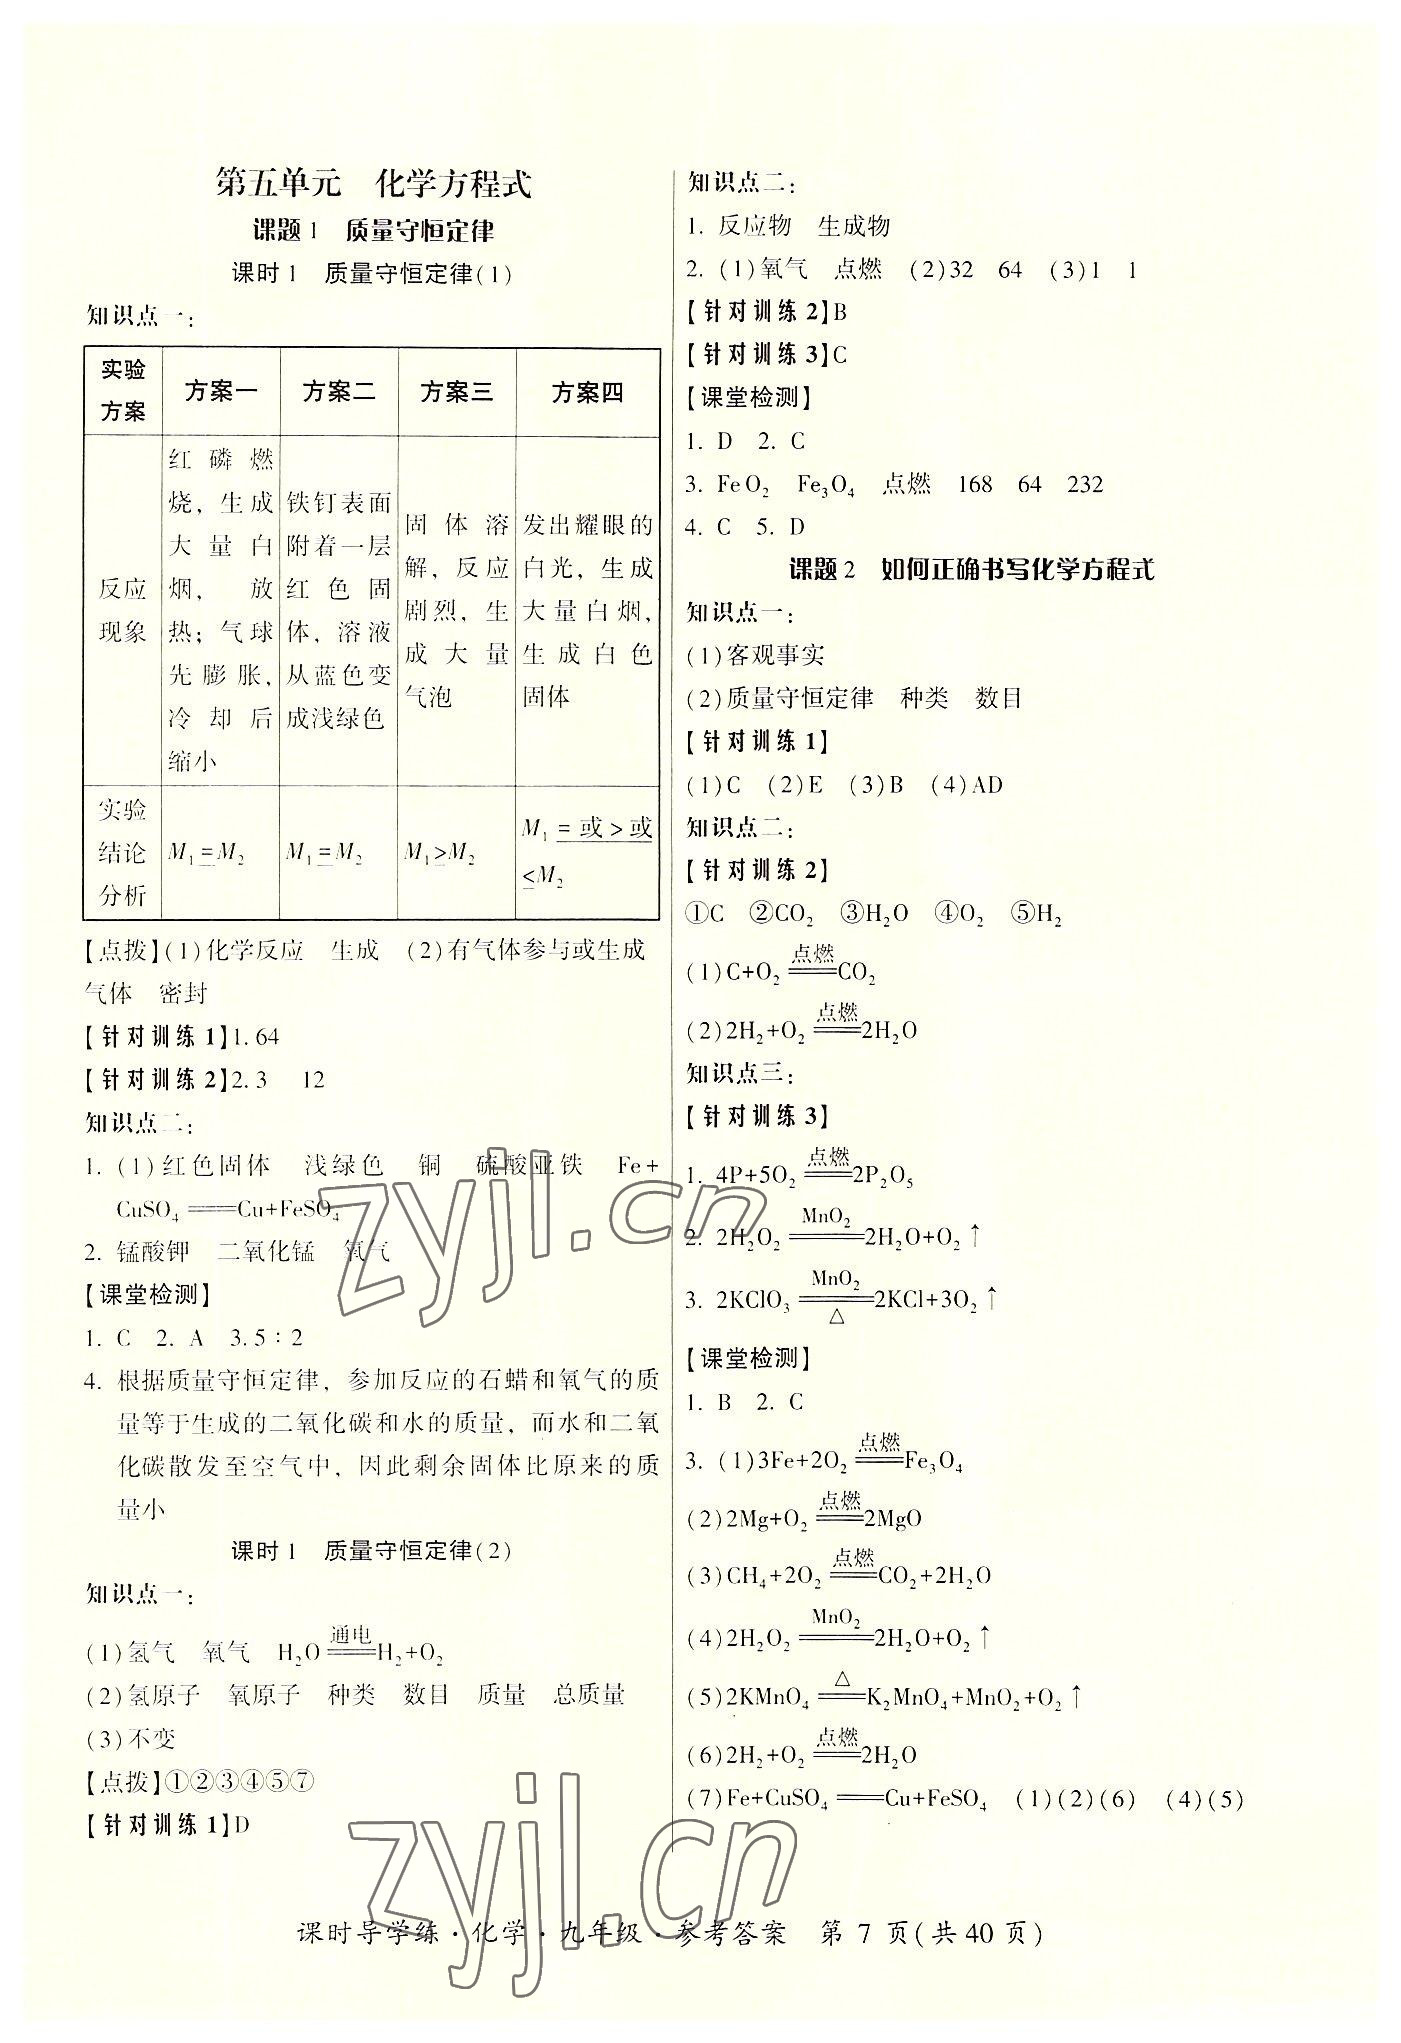 第五单元　化学方程式
课题1　质量守恒定律
课时1　质量守恒定律(1)
知识点一:
实验方案　方案一　方案二　方案三　方案四
反应现象　红磷燃烧，生成大量白烟，放热；气球先膨胀，冷却后缩小　铁钉表面附着一层红色固体，溶液从蓝色变成浅绿色　固体溶解，反应剧烈，生成大量气泡　发出耀眼的白光，生成大量白烟，生成白色固体
实验结论分析　M₁=M₂　M₁=M₂　M₁>M₂　M₁=或>或<M₂
【点拨】(1)化学反应　生成　(2)有气体参与或生成
气体　密封
【针对训练1】1.64
【针对训练2】2.3　12
知识点二:
1. (1)红色固体　浅绿色　铜　硫酸亚铁　Fe+
CuSO₄══Cu+FeSO₄
2. 锰酸钾　二氧化锰　氧气
【课堂检测】
1. C　2. A　3.5∶2
4. 根据质量守恒定律，参加反应的石蜡和氧气的质
量等于生成的二氧化碳和水的质量，而水和二氧
化碳散发至空气中，因此剩余固体比原来的质
量小
课时1　质量守恒定律(2)
知识点一:
(1)氢气　氧气　H₂O ══通电══ H₂+O₂
(2)氢原子　氧原子　种类　数目　质量　总质量
(3)不变
【点拨】①②③④⑤⑦
【针对训练1】D
知识点二:
1. 反应物　生成物
2. (1)氧气　点燃　(2)32　64　(3)1　1
【针对训练2】B
【针对训练3】C
【课堂检测】
1. D　2. C
3. FeO₂　Fe₃O₄　点燃　168　64　232
4. C　5. D
课题2　如何正确书写化学方程式
知识点一:
(1)客观事实
(2)质量守恒定律　种类　数目
【针对训练1】
(1)C　(2)E　(3)B　(4)AD
知识点二:
【针对训练2】
①C　②CO₂　③H₂O　④O₂　⑤H₂
(1)C+O₂ ══点燃══ CO₂
(2)2H₂+O₂ ══点燃══ 2H₂O
知识点三:
【针对训练3】
1. 4P+5O₂ ══点燃══ 2P₂O₅
2. 2H₂O₂ ══MnO₂══ 2H₂O+O₂↑
3. 2KClO₃ ══MnO₂/△══ 2KCl+3O₂↑
【课堂检测】
1. B　2. C
3. (1)3Fe+2O₂ ══点燃══ Fe₃O₄
(2)2Mg+O₂ ══点燃══ 2MgO
(3)CH₄+2O₂ ══点燃══ CO₂+2H₂O
(4)2H₂O₂ ══MnO₂══ 2H₂O+O₂↑
(5)2KMnO₄ ══△══ K₂MnO₄+MnO₂+O₂↑
(6)2H₂+O₂ ══点燃══ 2H₂O
(7)Fe+CuSO₄══Cu+FeSO₄　(1)(2)(6)　(4)(5)
zyjl.cn
zyjl.cn
课时导学练·化学·九年级·参考答案　第 7 页(共 40 页)